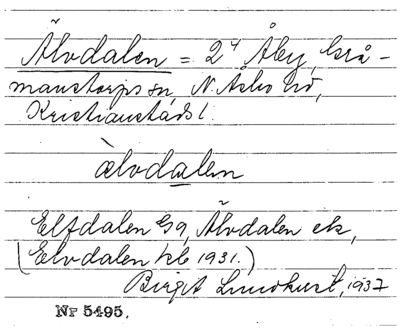 Älvdalen = 2⁴ Åby, Grå-
manstorps sn N. Åsbo hd,
Kristianstads l.
àlvdalen
Elfdalen Gg, Älvdalen ek,
(Elvdalen kb 1931.)
Birgit Lundkvist, 1937
Nr 5495.